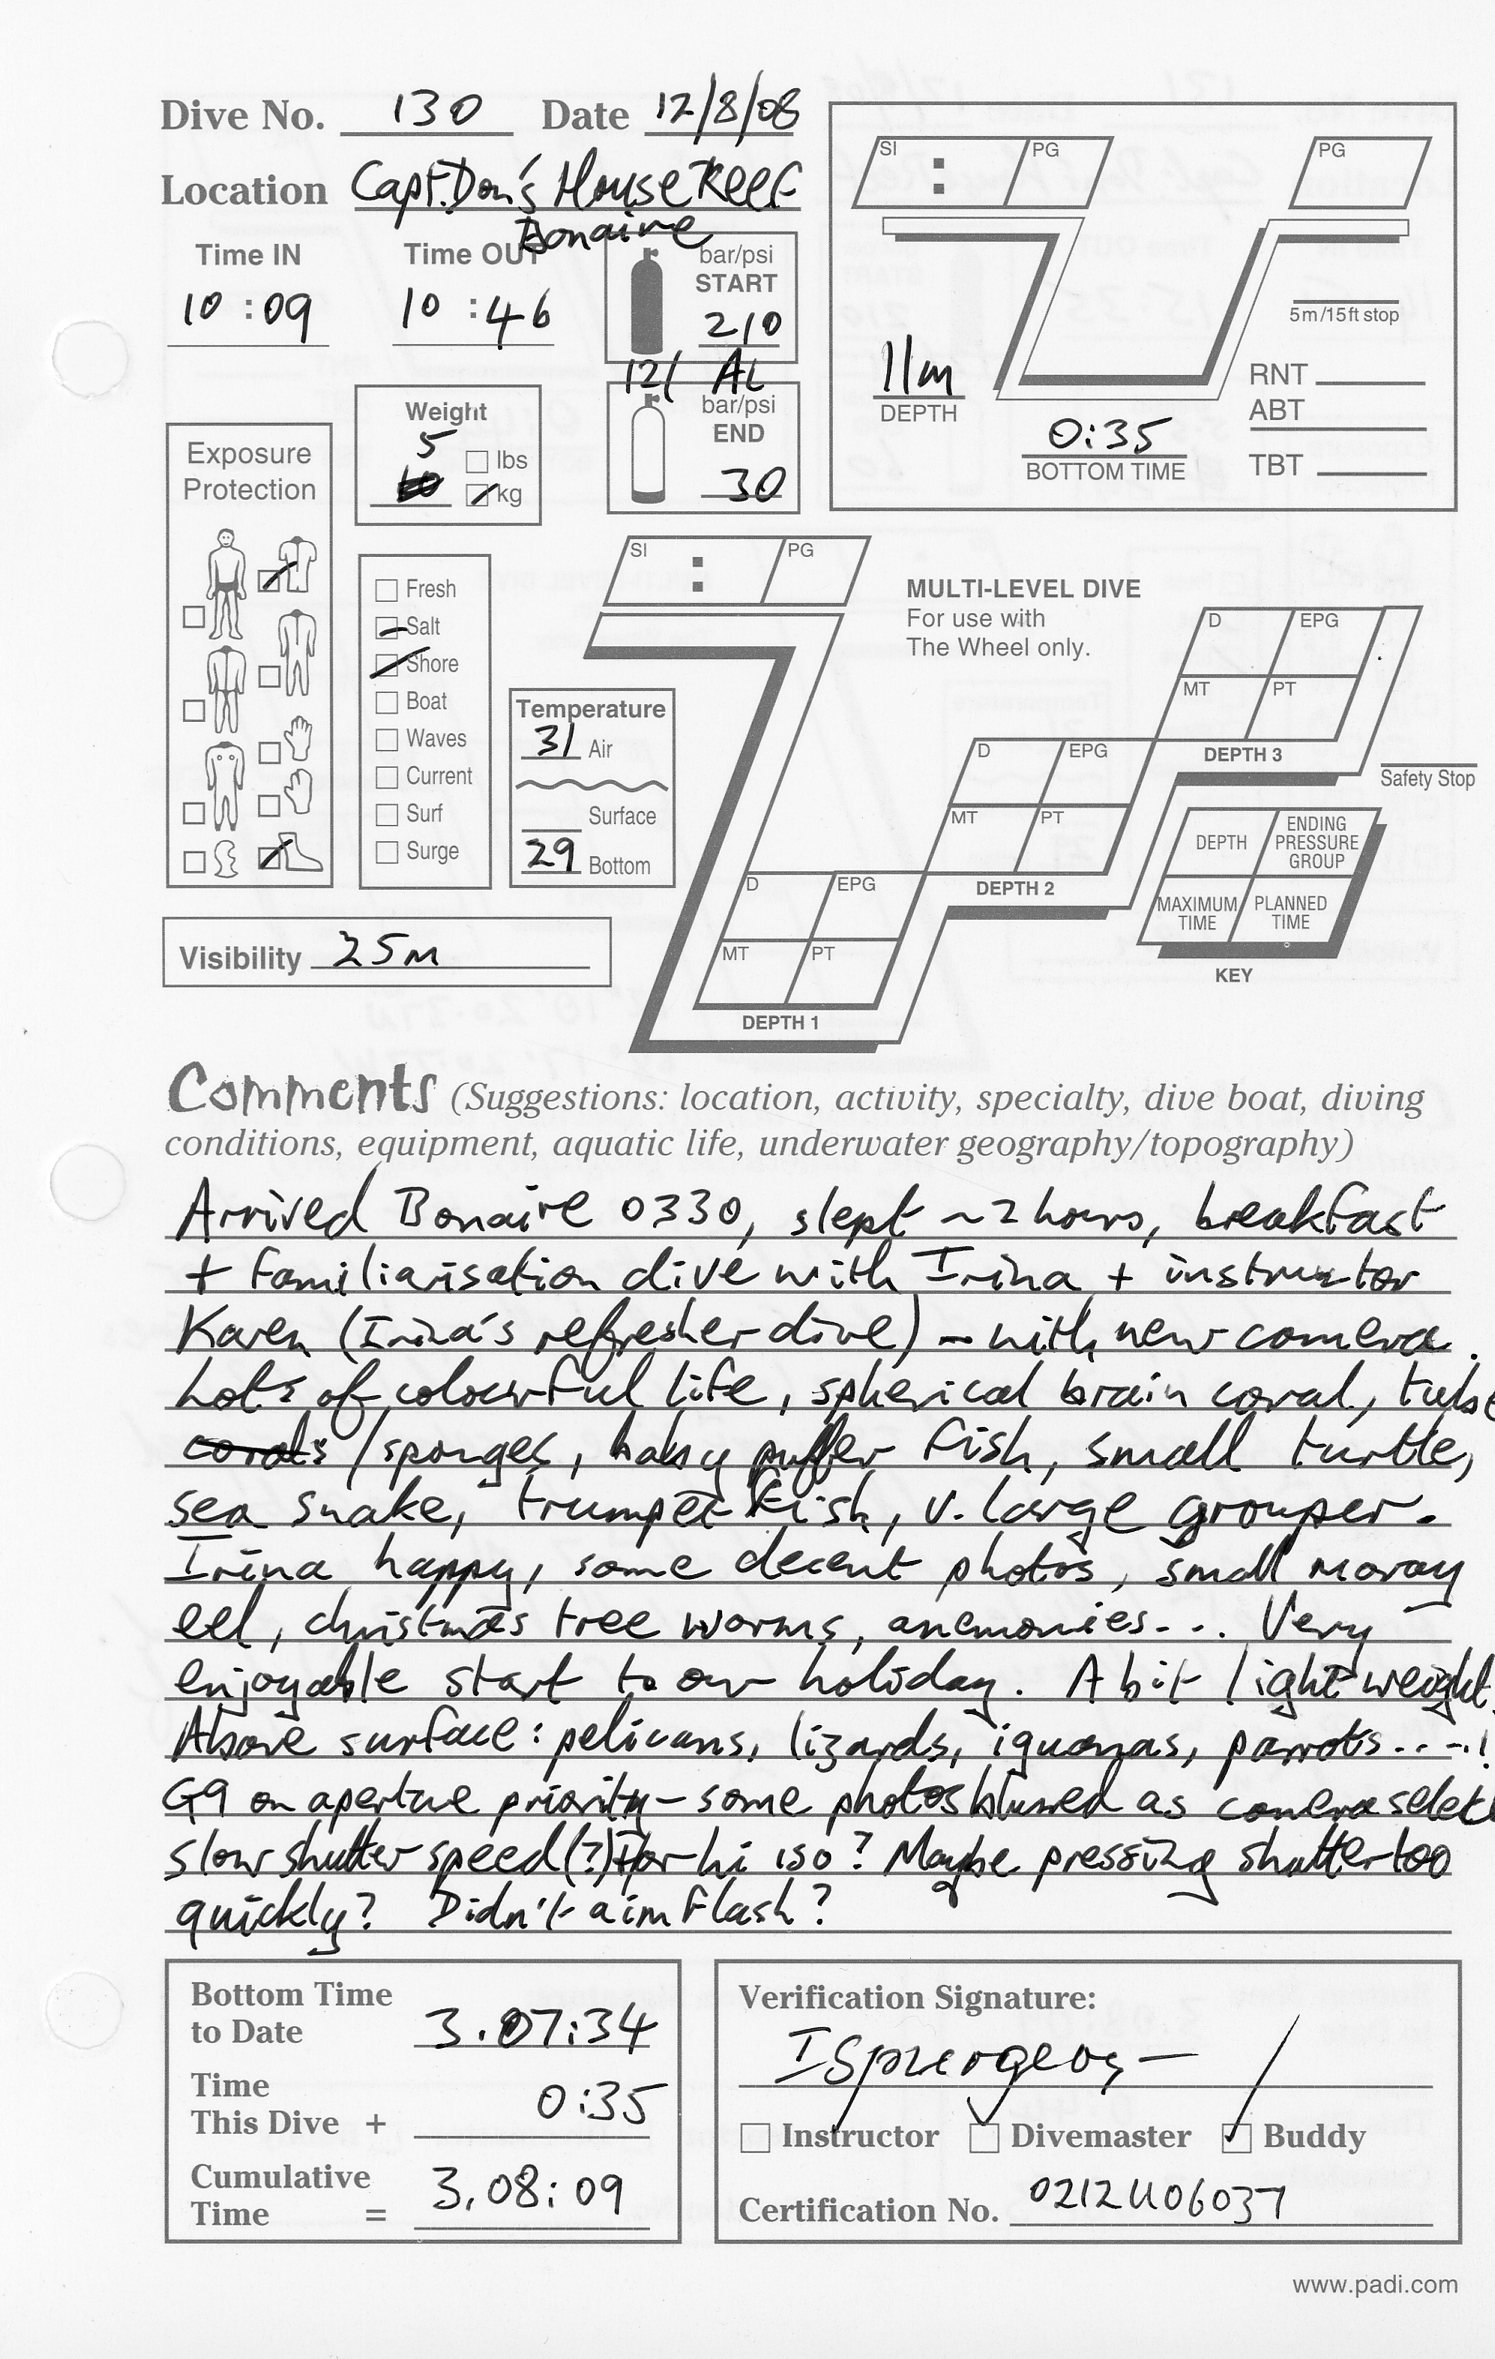 Dive No. 130 Date 12/8/08
Location Capt. Don's House Reef
Bonaire
Time IN Time OUT
10 : 09 10 : 46
bar/psi
START
210
12l AL
bar/psi
END
30
SI : PG
PG
5m/15ft stop
11m
DEPTH
0:35
BOTTOM TIME
RNT
ABT
TBT
Weight
5
lbs
kg
Exposure
Protection
Fresh
Salt
Shore
Boat
Waves
Current
Surf
Surge
Temperature
31 Air
Surface
29 Bottom
SI : PG
MULTI-LEVEL DIVE
For use with
The Wheel only.
D EPG
MT PT
DEPTH 3
Safety Stop
D EPG
MT PT
DEPTH 2
D EPG
MT PT
DEPTH 1
DEPTH ENDING PRESSURE GROUP
MAXIMUM TIME PLANNED TIME
KEY
Visibility 25m
Comments (Suggestions: location, activity, specialty, dive boat, diving
conditions, equipment, aquatic life, underwater geography/topography)
Arrived Bonaire 0330, slept ~2 hours, breakfast
+ familiarisation dive with Irina + instructor
Karen (Irina's refresher dive) - with new camera.
Lots of colourful life, spherical brain coral, tube
corals / sponges, baby puffer fish, small turtle,
sea snake, trumpet fish, v. large grouper.
Irina happy, some decent photos, small moray
eel, christmas tree worms, anemonies... Very
enjoyable start to our holiday. A bit light weight.
Above surface: pelicans, lizards, iguanas, parrots....!
G9 on aperture priority - some photos blurred as camera select
slow shutter speed (?) for hi iso? Maybe pressing shutter too
quickly? Didn't aim flash?
Bottom Time
to Date 3.07:34
Time
This Dive + 0:35
Cumulative
Time = 3.08:09
Verification Signature:
Instructor Divemaster Buddy
Certification No. 0212U06037
www.padi.com